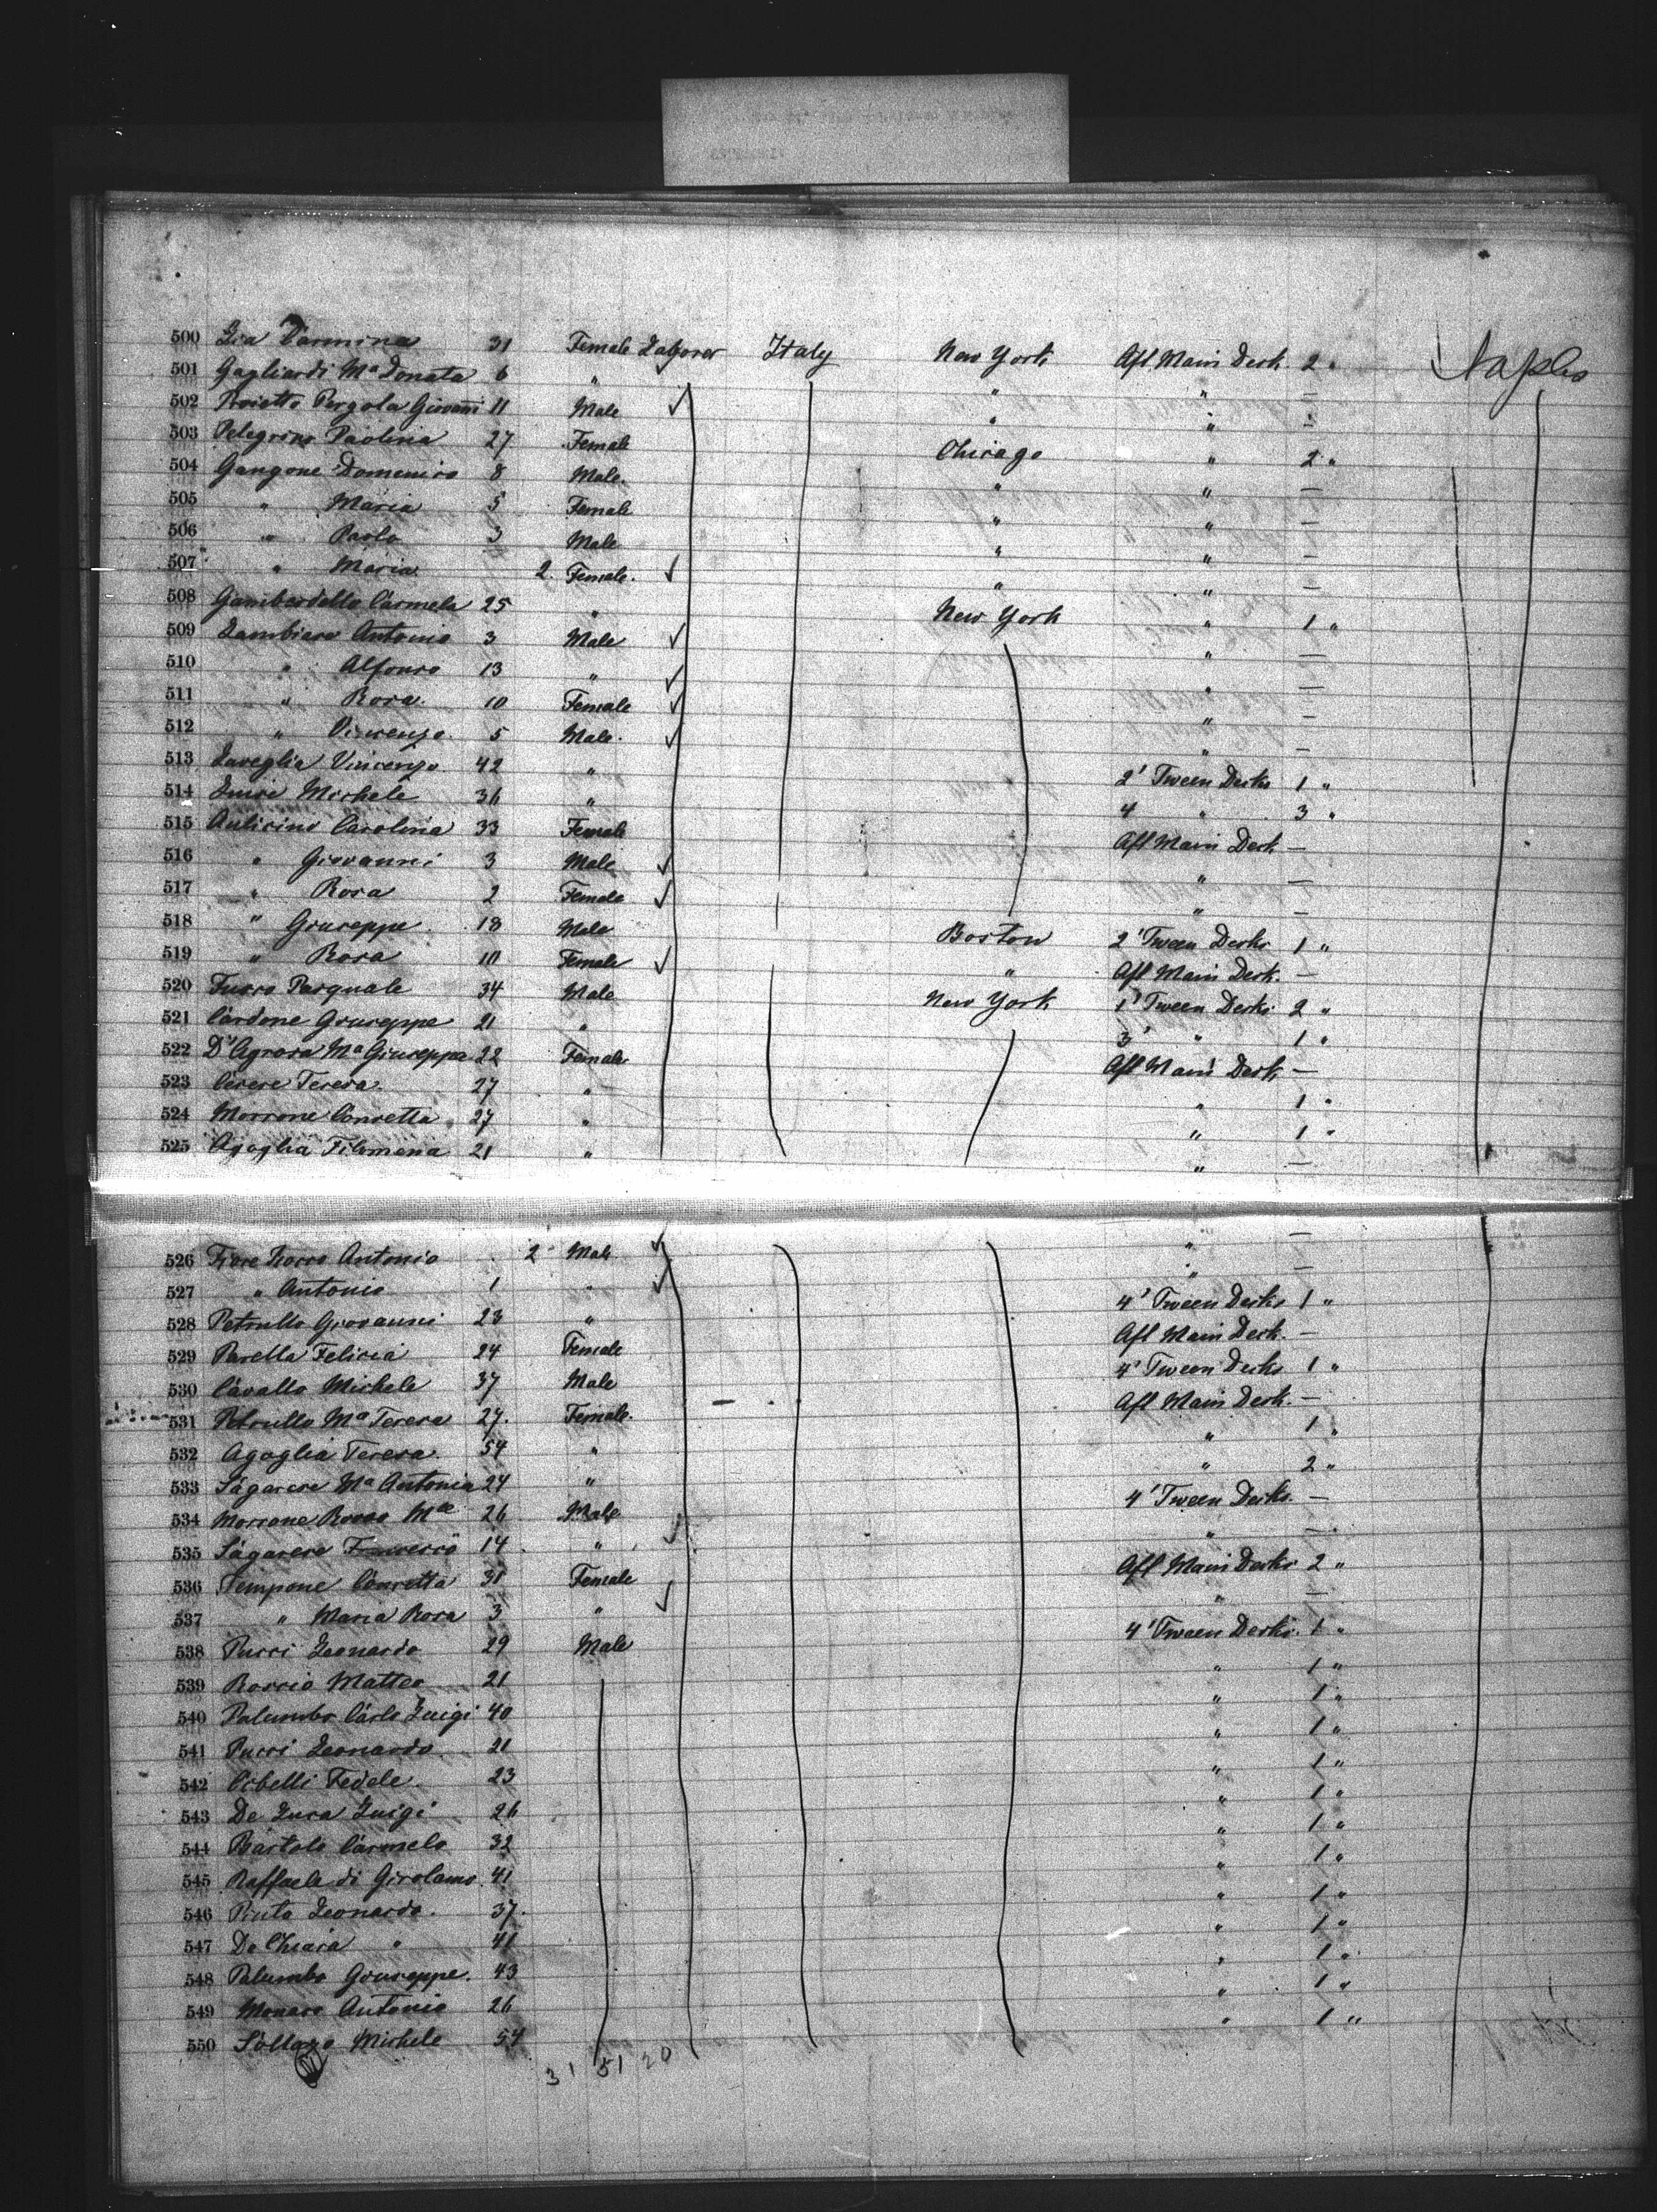 500 Zia Carmina 31 Female Laborer Italy New York Aft Main Deck 2 " Naples
501 Gagliardi Ma Donata 6 " " " —
502 Pergola Giovanni 11 Male " " —
503 Pelegrino Paolina 27 Female Chicago " 2 "
504 Gangone Domenico 8 Male " " —
505 " Maria 5 Female " " —
506 " Paolo 3 Male " " —
507 " Maria 2 Female " " —
508 Gambardella Carmela 25 " New York " 1 "
509 Antonio 3 Male " —
510 " Alfonso 13 " " —
511 " Rosa 10 Female " —
512 " Vincenzo 5 Male " —
513 Laveglia Vincenzo 42 " 2' Tween Decks 1 "
514 Luise Michele 36 " 4 " 3 "
515 Aulicino Carolina 33 Female Aft Main Deck —
516 " Giovanni 3 Male " —
517 " Rosa 2 Female " —
518 " Giuseppe 18 Male Boston 2' Tween Decks 1 "
519 " Rosa 10 Female " Aft Main Deck —
520 Fusco Pasquale 34 Male New York 1' Tween Decks 2 "
521 Cardone Giuseppe 21 " 3' " 1 "
522 D'Agrosa Ma Giuseppa 22 Female Aft Main Deck —
523 Cerere Teresa 27 " " 1 "
524 Morrone Concetta 27 " " 1 "
525 Agoglia Filomena 21 " " —
526 Fiore Antonio 2 Male " —
527 " Antonio 1 " " —
528 Petrullo Giovanni 23 " 4' Tween Decks 1 "
529 Parella Felicia 24 Female Aft Main Deck —
530 Cavallo Michele 37 Male 4' Tween Decks 1 "
531 Petrullo Ma Teresa 27 Female Aft Main Deck —
532 Agoglia Teresa 54 " " 1 "
533 Sagarese Ma Antonia 24 " " 2 "
534 Morrone Rocco 26 Male 4' Tween Decks —
535 Sagarese Francesco 14 " " —
536 Tempone Concetta 31 Female Aft Main Decks 2 "
537 " Maria Rosa 3 " " —
538 Pucci Leonardo 29 Male 4' Tween Decks 1 "
539 Roscio Matteo 21 " 1 "
540 Palumbo Carlo Luigi 40 " 1 "
541 Pucci Leonardo 21 " 1 "
542 Cibelli Fedele 23 " 1 "
543 De Luca Luigi 26 " 1 "
544 Bartolo Carmelo 32 " 1 "
545 Raffaele di Girolamo 41 " 1 "
546 Pinto Leonardo 37 " 1 "
547 De Chiara " 41 " 1 "
548 Palumbo Giuseppe 43 " 1 "
549 Monaco Antonio 26 " 1 "
550 Sollazzo Michele 54 " 1 "
31 51 20